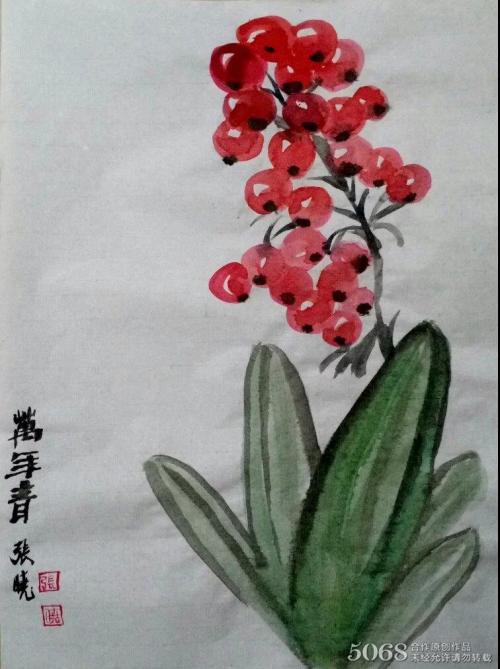 萬年青
张晓
張
5068 合作原创作品
未经允许请勿转载